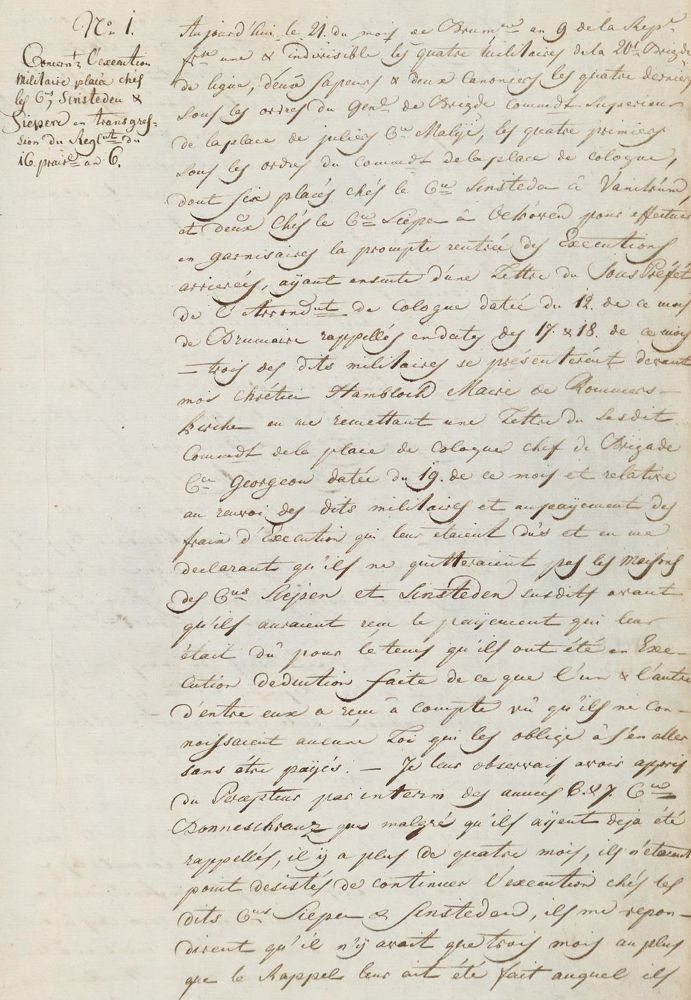 N.º 1.
Concernt. l'execution
militaire placée chés
les Cns. Sinsteden &
Siepen en transgres-
sion du Reglent. du
16. prairal an 6.
Aujourd'hui le 21. du mois de Brumre an 9 de la Rep.
frse une & indivisible les quatre militaires de la 20e Brigde
de ligne, deux sapeurs & deux canoniers les quatre derniers
sous les ordres du Genl. de Brigde commdt. superieur
de la place de juliers Cen, les quatre premiers
sous les ordres du Commdt. de la place de cologne,
dont six placés chés le Cen Sinsteden à
et deux chés le Cen Siepen à pour effectuer
en garnisaires la prompte rentrée des Executions
arrierées, aÿant ensuite d'une Lettre du Sous Préfèt
de l'Arrondnt. de Cologne datée du 12. de ce mois
de Brumaire rappellés en dates des 17. & 18. de ce mois
– trois des dits militaires se présenterént devant
moi Chrétien Hambloch Maire de Rommers-
kirche en me remettant une Lettre du susdit
Commdt. de la place de Cologne chef de Brigade
Cen Georgeon datée du 19. de ce mois et relative
au renvoi des dits militaires et au paÿement des
frais d'Execution qui leur étaient dûs et en me
declarant qu'ils ne quitteraient pas les maisons
des Cens Siepen et Sinsteden susdits avant
qu'ils auraient reçu le paÿement qui leur
était dû pour le tems qu'ils ont été en Exe-
cution deduction faite de ce que l'un & l'autre
d'entre eux a reçu à compte vû qu'ils ne con-
noissaient aucune Loi qui les oblige à s'en aller
sans être paÿés. – Je leur observais avoir appris
du Percepteur par interim des années 6. & 7. Cen
que malgré qu'ils aÿent deja été
rappellés, il ÿ a plus de quatre mois, ils n'étaient
point desistés de continuer l'execution chés les
dits Cens Siepen & Sinsteden, ils me repon-
dirent qu'il n'ÿ avait que trois mois au plus
que le Rappel leur ait été fait auquel ils